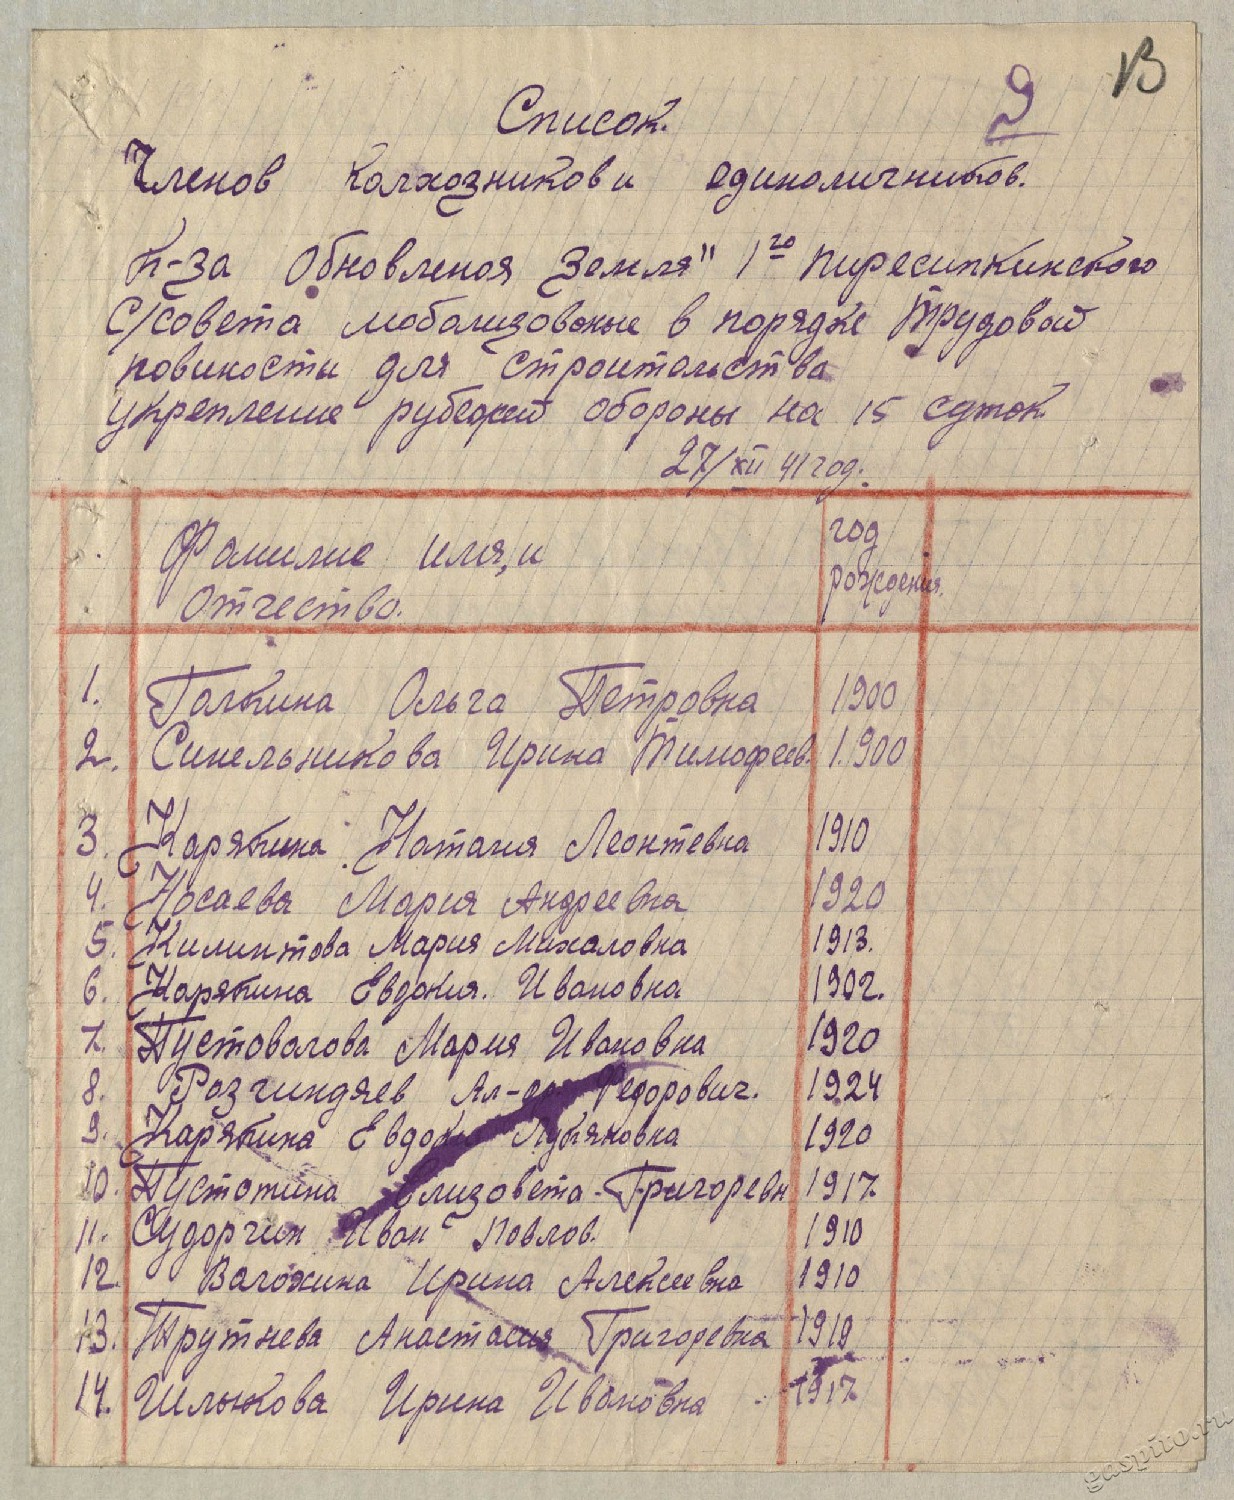 13
9
Список.
Членов колхозников и единоличников.
К-за Обновленоя Земля" 1го Пиресипкинского
С/совета мобализованые в порядке Трудовой
повиности для строительства
укрепление рубежей обороны на 15 суток
27/XII 41 год.
Фамилие имя, и год
Отчество. рождения.
1. Галкина Ольга Петровна 1900
2. Синельникова Ирина Тимофеев. 1.900
3. Карякина Наталия Леонтевна 1910
4. Носаева Мария Андреевна 1920
5. Килинтова Мария Михаловна 1913.
6. Карякина Евдокия. Ивановна 1902.
7. Пустовалова Мария Ивановна 1920
8. Разгиндяев Федорович. 1924
9. Карякина Лукяновна 1920
10. Пустотина Елизовета Григоревн 1917.
11. Судоргин Иван Павлов. 1910
12. Вагожина Ирина Алексеевна 1910
13. Трутнева Анастасия Григоревна 1919
14. Шлыкова Ирина Ивановна 1917
gaspiro.ru